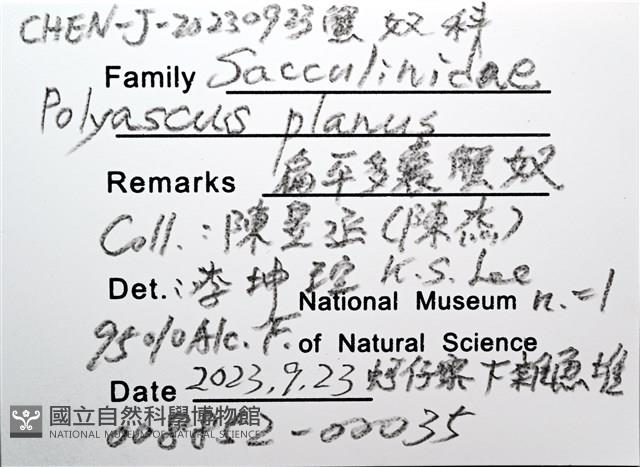 CHEN-J-20230923 蟹奴科
Family Sacculinidae
Polyascus planus
Remarks 扁平多囊蟹奴
Coll.: 陳昱丞 (陳杰)
Det.: 李坤瑄 K.S. Lee
National Museum n.=1
95% Alc. F. of Natural Science
Date 2023.9.23 蚵仔寮下雜魚堆
國立自然科學博物館
NATIONAL MUSEUM OF NATURAL SCIENCE
-00035